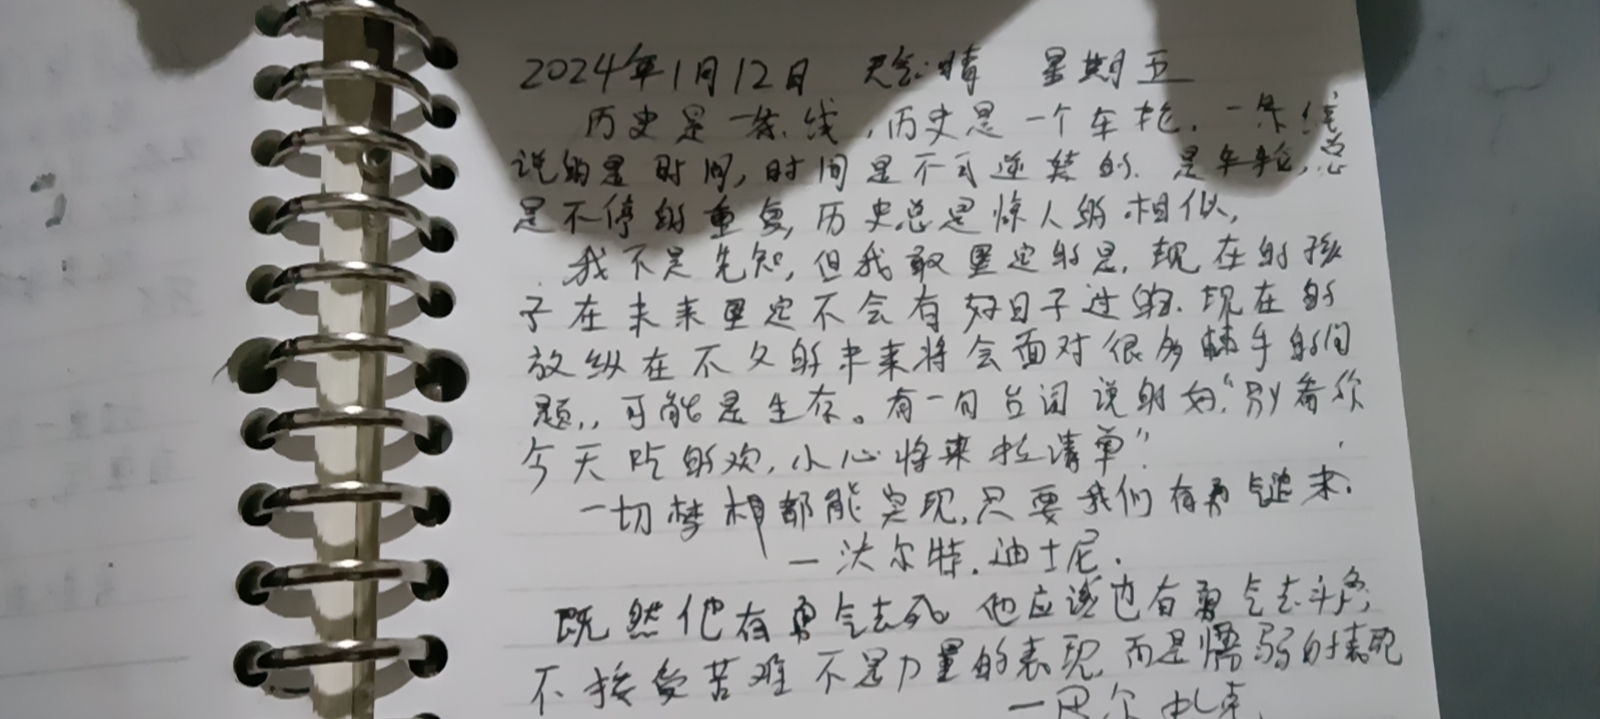 2024年1月12日 天气:晴 星期五
历史是一条线,历史是一个车轮.一条线
说的是时间,时间是不可逆转的.是车轮,总
是不停的重复,历史总是惊人的相似,
我不是先知,但我敢坚定的是,现在的孩
子在未来坚定不会有好日子过的.现在的
放纵在不久的未来将会面对很多棘手的问
题,,可能是生存。有一句台词说的好"别看你
今天吃的欢,小心将来拉清单"
一切梦想都能实现,只要我们有勇气追求.
—沃尔特.迪士尼.
既然他有勇气去死。他应该也有勇气去斗争,
不接受苦难不是力量的表现,而是懦弱的表现
—巴尔扎克